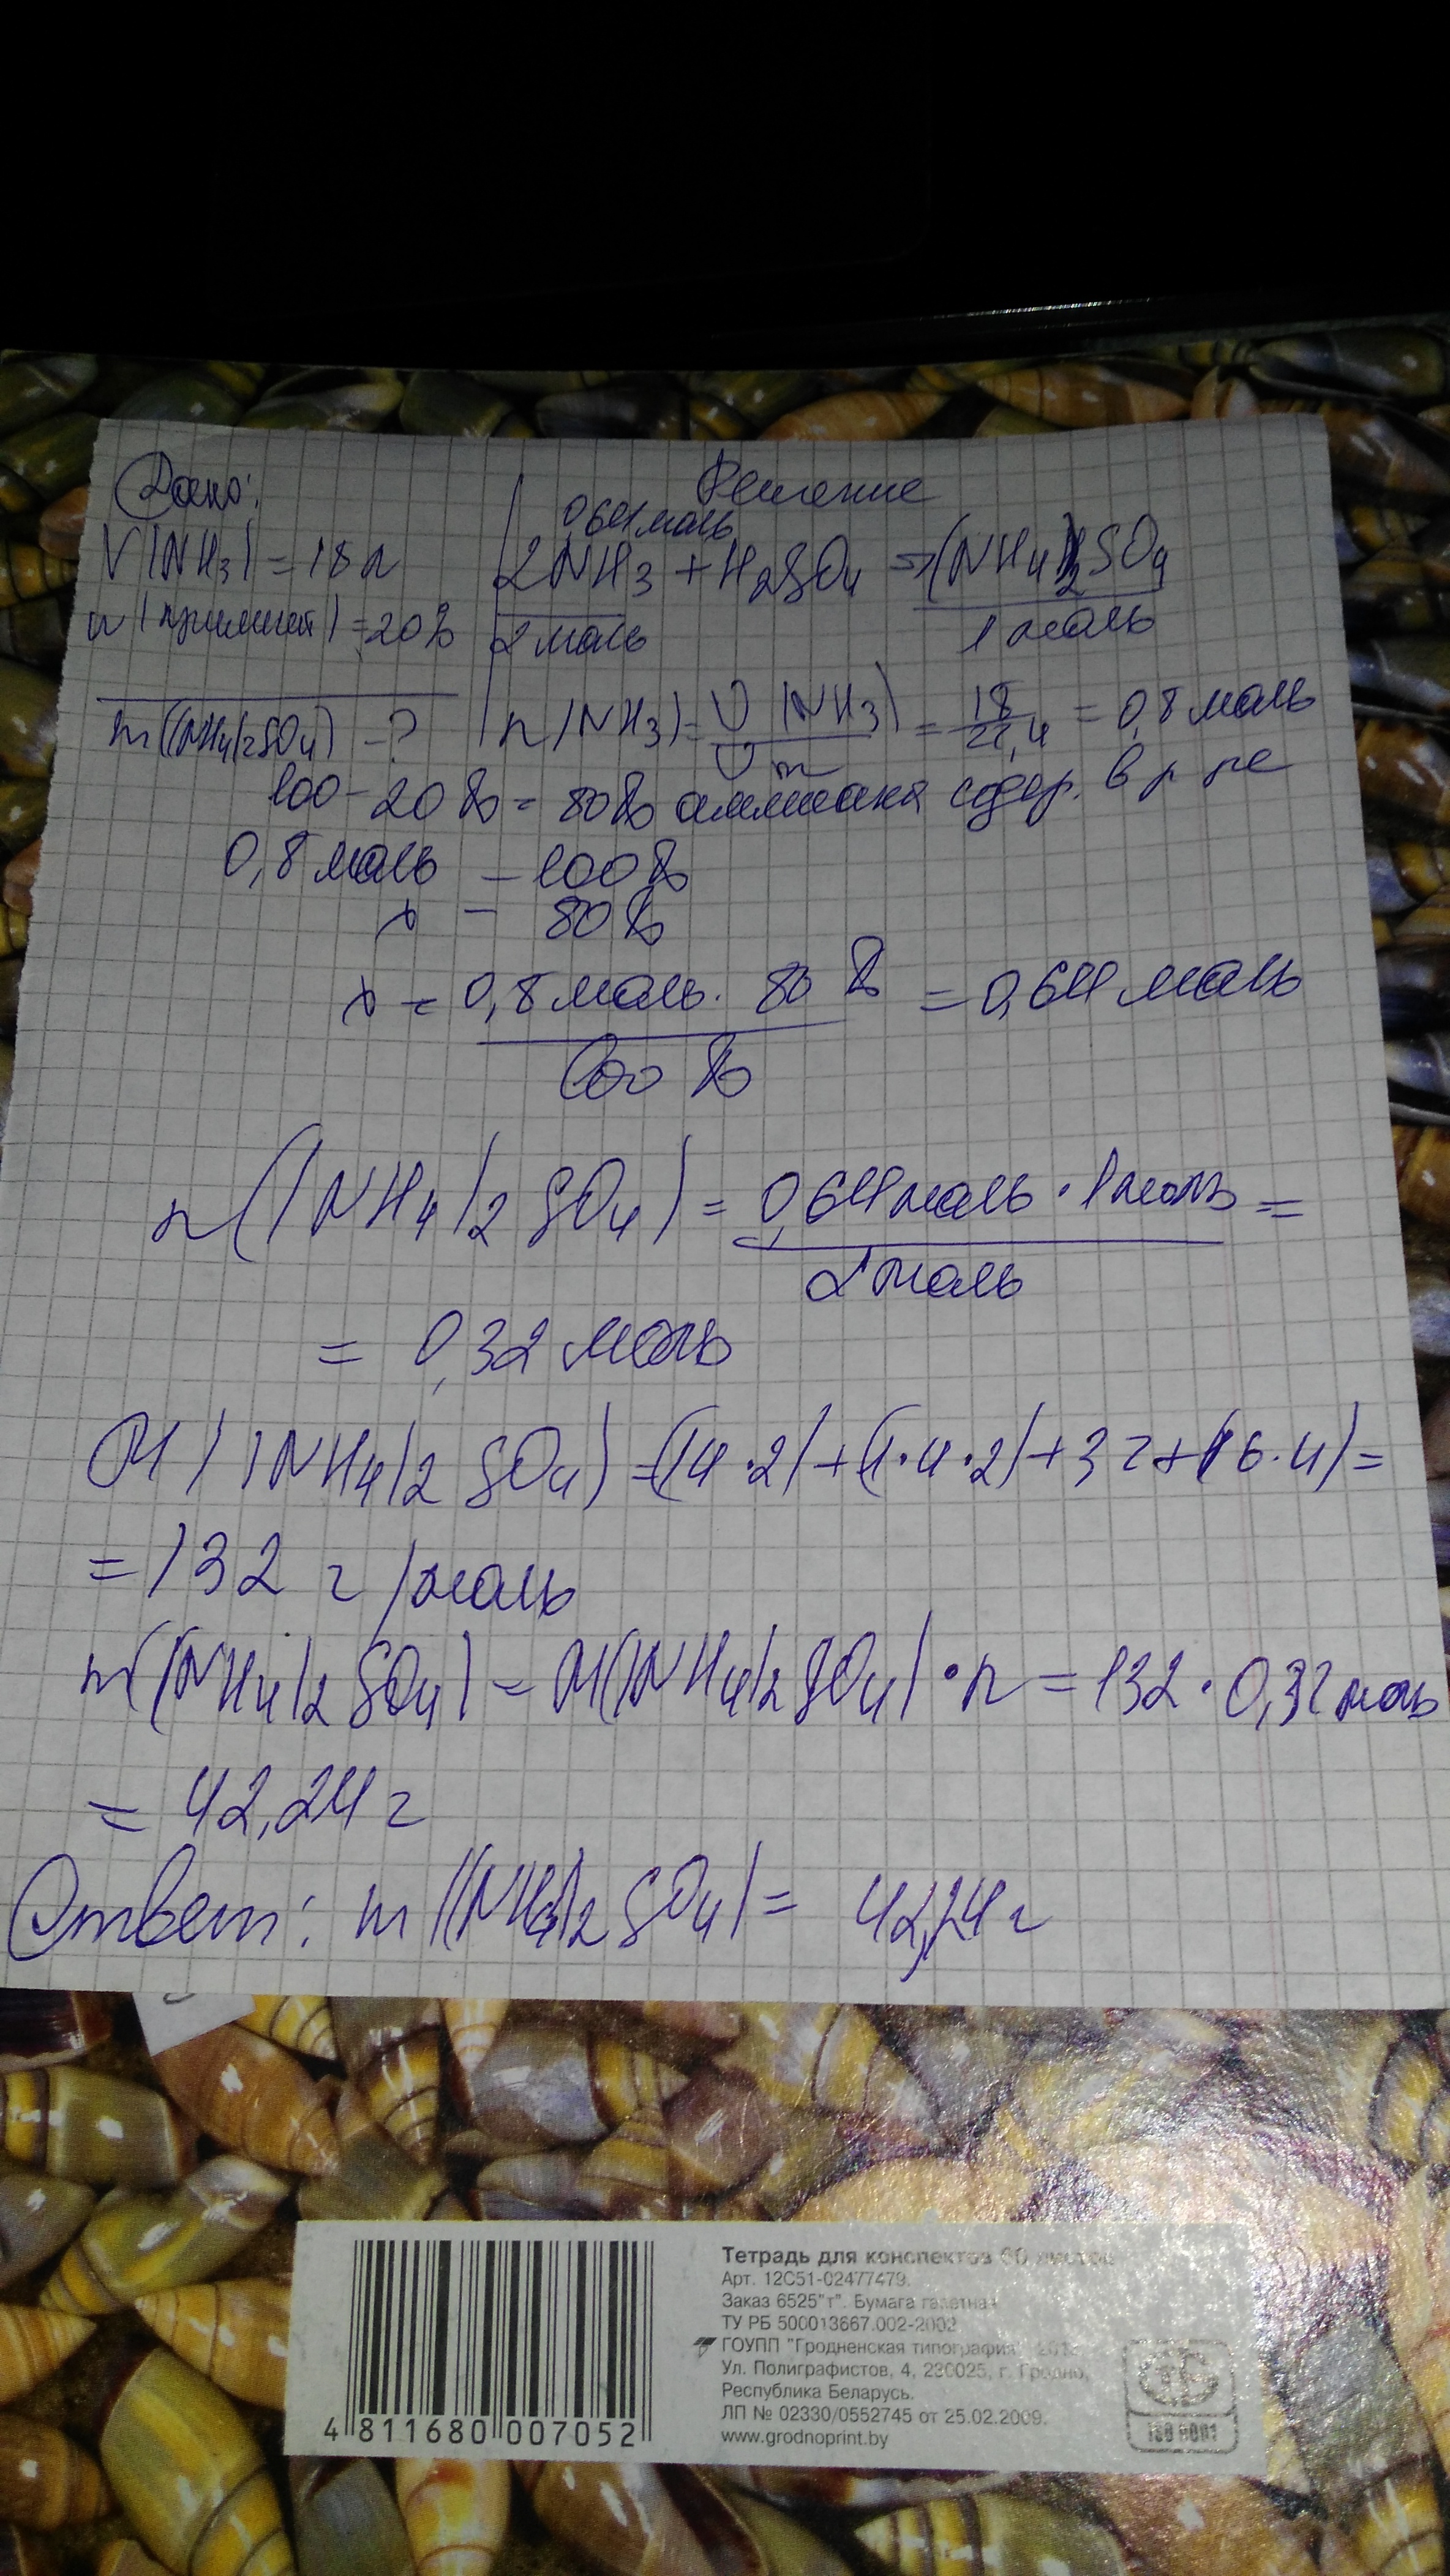 Дано:
Решение
0,64 моль
V(NH3) = 18 л
2NH3 + H2SO4 → (NH4)2SO4
w(примесей) = 20%
2 моль
1 моль
m((NH4)2SO4) - ?
n(NH3) = V(NH3) / Vm = 18 / 22,4 = 0,8 моль
100 - 20% = 80% аммиака содер. в р-ре
0,8 моль - 100%
x - 80%
x = 0,8 моль · 80% / 100% = 0,64 моль
n((NH4)2SO4) = 0,64 моль · 1 моль / 2 моль =
= 0,32 моль
M((NH4)2SO4) = (14·2)+(1·4·2)+32+(16·4) =
= 132 г/моль
m((NH4)2SO4) = M((NH4)2SO4) · n = 132 · 0,32 моль
= 42,24 г
Ответ: m((NH4)2SO4) = 42,24 г
Тетрадь для конспектов 60 листов
Арт. 12С51-02477479.
Заказ 6525"т". Бумага газетная
ТУ РБ 500013667.002-2002
ГОУПП "Гродненская типография"
Ул. Полиграфистов, 4, 230025, г. Гродно,
Республика Беларусь.
ЛП № 02330/0552745 от 25.02.2009.
www.grodnoprint.by
4 811680 007052
ISO 9001